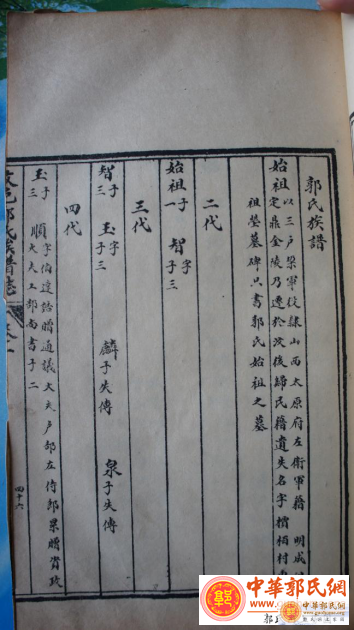 郭氏族譜
始祖 以三戶梁軍役隸山西太原府左衛軍籍 明成
定鼎金陵乃遷於汶後歸民籍遺失名字 栢村
祖塋墓碑只書郭氏始祖之墓
二代
始祖子一 智字子三
三代
智子三 玉字子三 麟子失傳 泉子失傳
四代
玉子三 順字伯達誥贈通議大夫戶部左侍郎累贈資政
大夫工部尚書子二
邑郭氏族譜誌
四十六
中華郭氏網